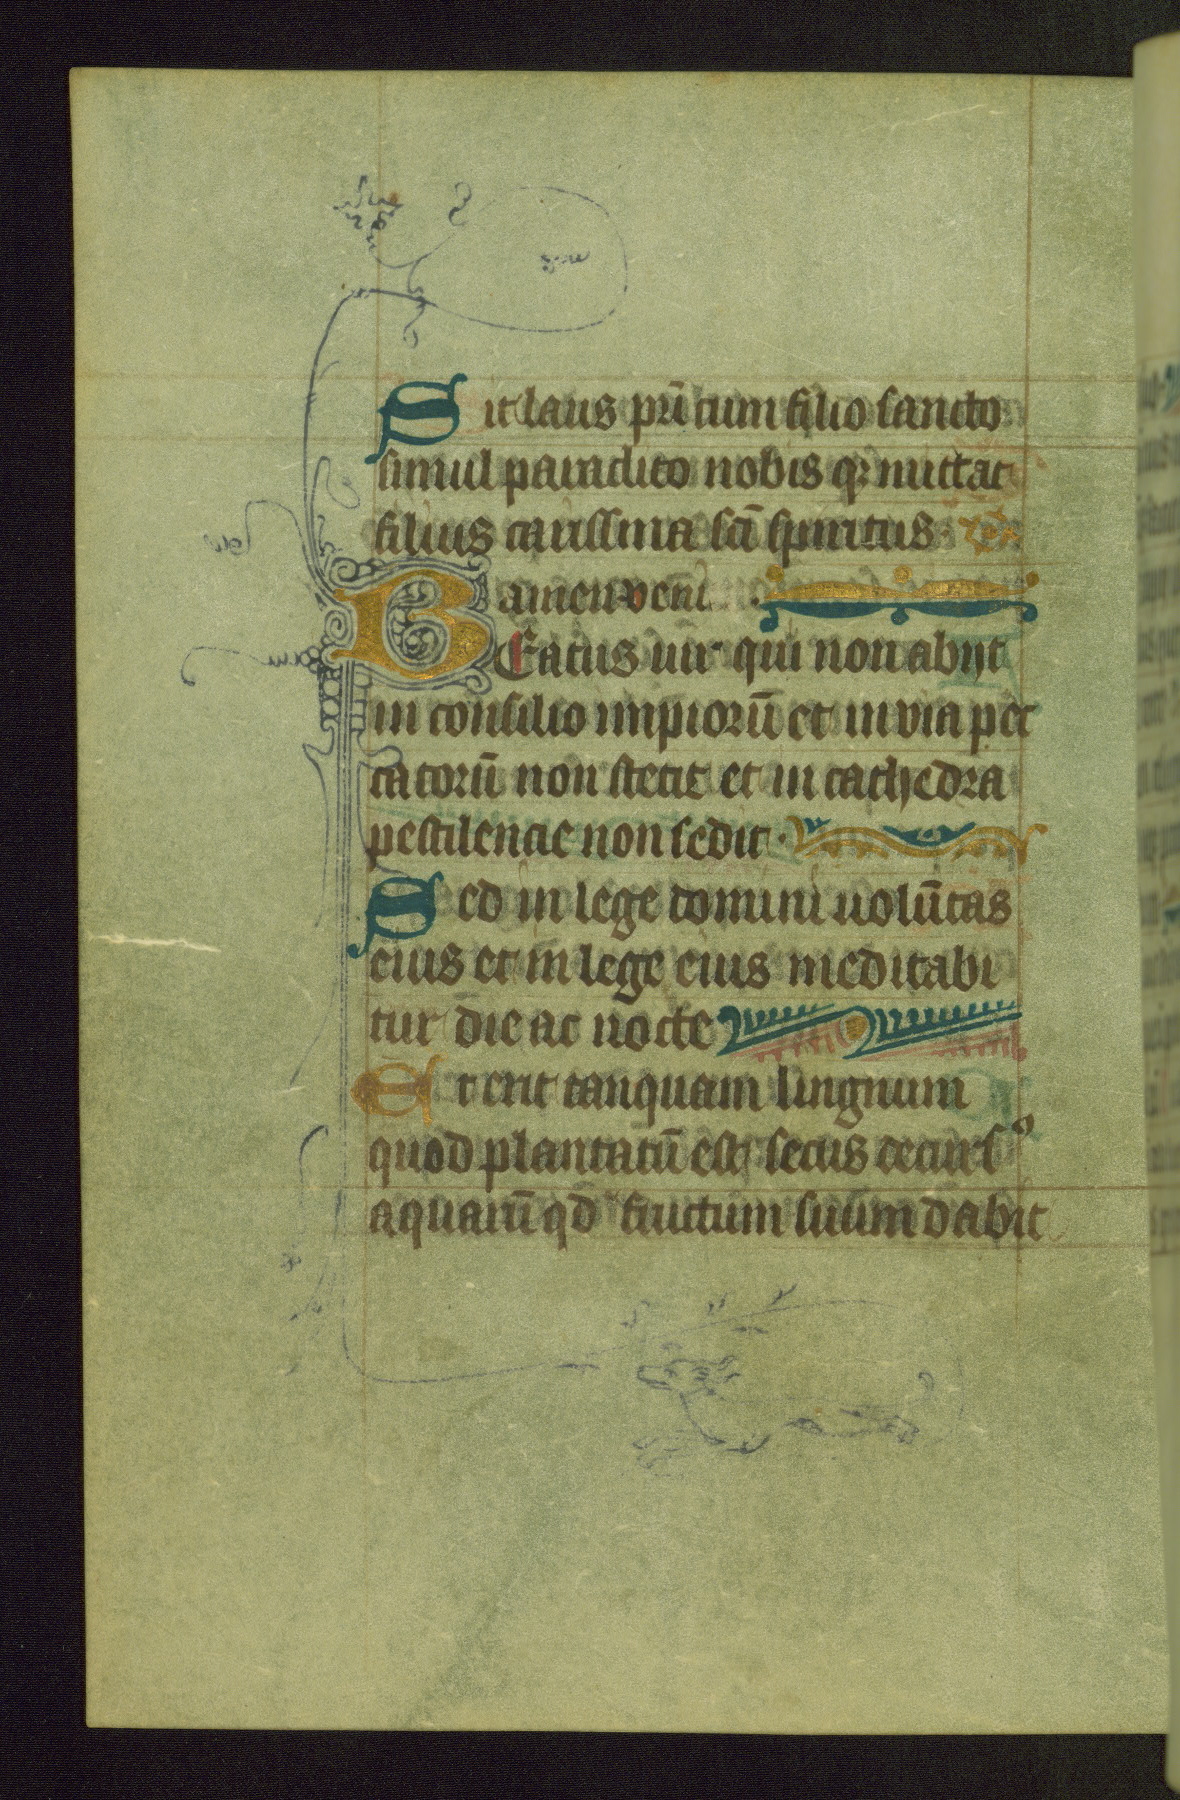 Sit laus pr̄i cum filio sancto
simul paraclito nobis q; mittat
filius carissma sc̄i spiritus
amen veni
BEatus uir qui non abijt
in consilio impiorū et in via pec
catorū non stetit et in cathedra
pestilencie non sedit
Sed in lege domini uolūtas
eius et in lege eius meditabi
tur die ac nocte
Et erit tanquam lingnum
quod plantatū est secus decurs⁹
aquarū qd̄ fructum suum dabit